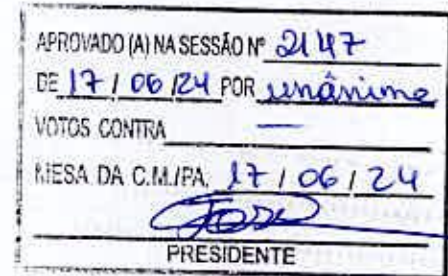 APROVADO (A) NA SESSÃO Nº 2147
DE 17 / 06 /24 POR unânime
VOTOS CONTRA —
MESA DA C.M./PA, 17 / 06 / 24
PRESIDENTE